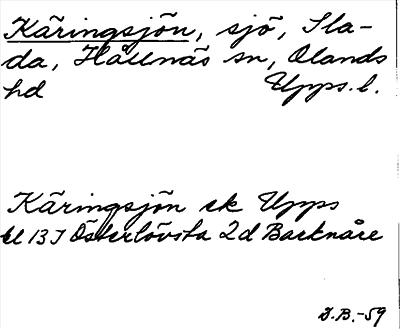 Käringsjön, sjö, Sla-
da, Hållnäs sn, Olands
hd Upps. l.
Käringsjön ek Upps
bl 13 I Österlövsta 2d Barknåre
J.B.-59